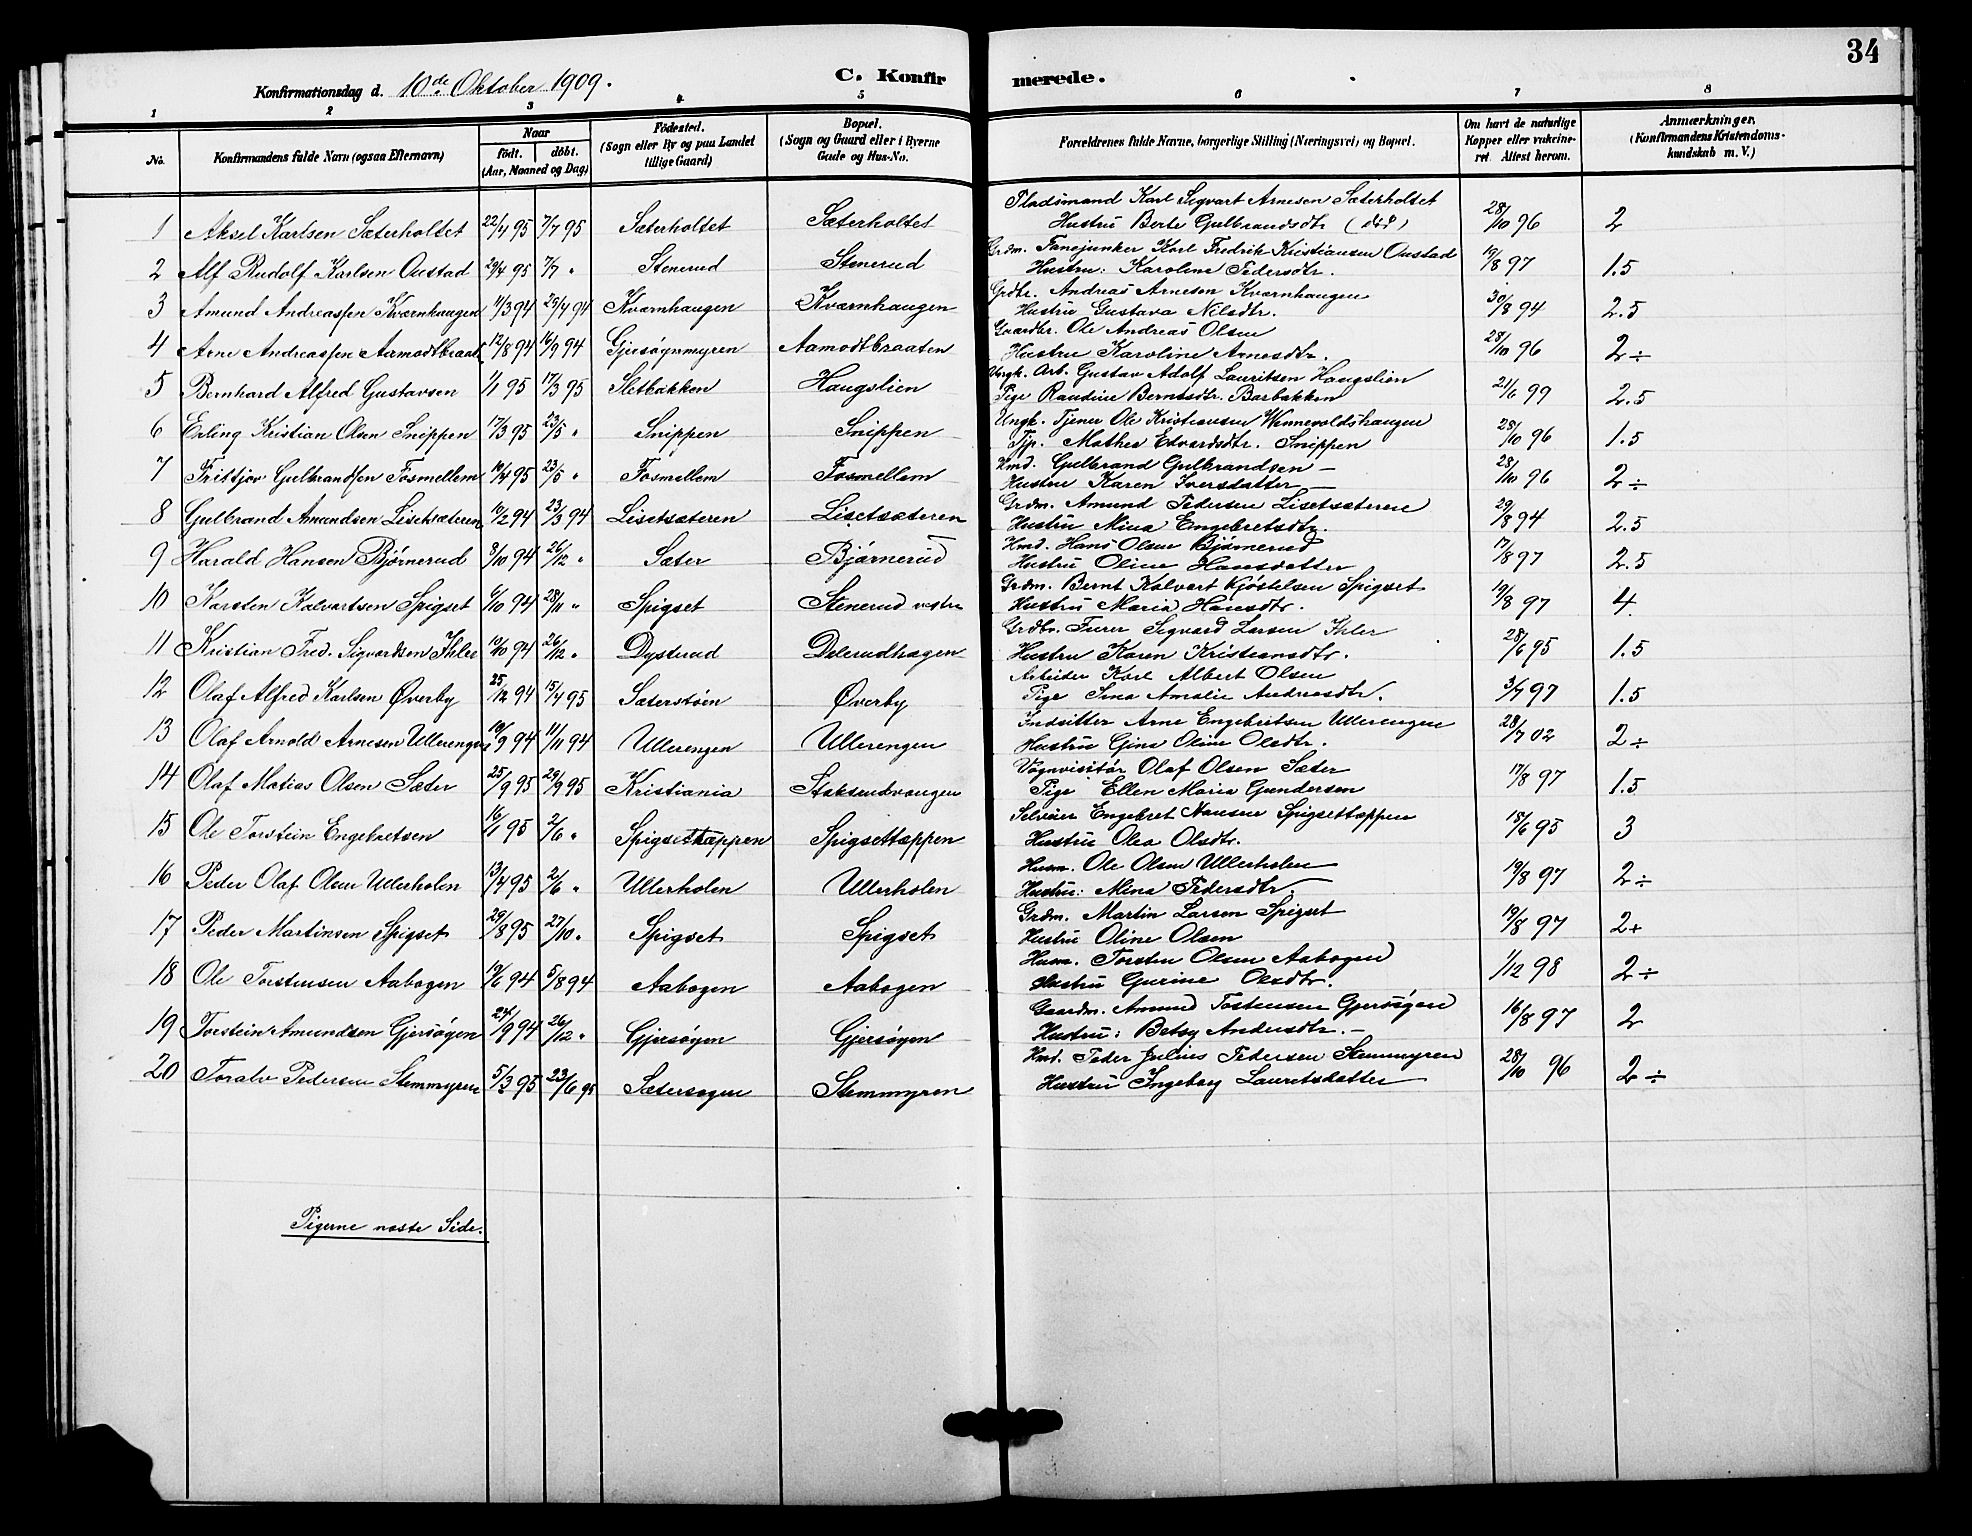 34
Konfirmationsdag d. 10de Oktober 1909.
C. Konfirmerede.
1 2 3 4 5 6 7 8
No. Konfirmandens fulde Navn (ogsaa Efternavn) Naar født. døbt. (Aar, Maaned og Dag) Fødested. (Sogn eller By og paa Landet tillige Gaard) Bopæl. (Sogn og Gaard eller i Byerne Gade og Hus-No. Forældrenes fulde Navne, borgerlige Stilling (Næringsvei) og Bopæl. Om havt de naturlige Kopper eller vakcineret. Attest herom. Anmærkninger, (Konfirmandens Kristendomskundskab m. V.)
1 Aksel Karlsen Sæterholtet 22/4 95 7/7 95 Sæterholtet Sæterholtet Pladsmand Karl Sigvart Arnesen Sæterholtet 28/10 96 2
Hustru Berte Gulbrandsdtr (død)
2 Alf Rudolf Karlsen Oustad 29/4 95 7/7 " Stenerud Stenerud Grdm. Fanejunker Karl Fredrik Kristiansen Oustad 19/8 97 1.5
Hustru: Karoline Pedersdtr.
3 Amund Andreassen Kværnhaugen 11/3 94 29/4 94 Kværnhaugen Kværnhaugen Grdbr. Andreas Arnesen Kværnhaugen 30/8 94 2.5
Hustru Gustava Nilsdtr.
4 Arne Andreassen Aamodtbraat 12/8 94 16/9 94 Gjersøgnmyren Aamodtbraaten Gaardbr. Ole Andreas Olsen 28/10 96 2÷
Hustru Karoline Arnesdtr.
5 Bernhard Alfred Gustavsen 1/1 95 17/3 95 Sletbakken Haugslien Ungk. Arb. Gustav Adolf Lauritsen Haugslien 21/6 99 2.5
Pige Randine Berntsdtr. Barbakken
6 Erling Kristian Olsen Snippen 17/3 95 23/5 " Snippen Snippen Ungk. Tjener Ole Kristiansen Winnevoldshaugen 28/10 96 1.5
Tjp. Mathea Edvardsdtr. Snippen
7 Fritjov Gulbrandsen Fosmellem 10/4 95 23/5 " Fosmellem Fosmellem Hmd. Gulbrand Gulbrandsen — 28/10 96 2÷
Hustru Karen Iversdatter —
8 Gulbrand Amundsen Lisetsæteren 10/2 94 23/3 94 Lisetsæteren Lisetsæteren Grdm. Amund Pedersen Lisetsæteren 29/8 94 2.5
Hustru Mina Engebretsdtr.
9 Harald Hansen Bjørnerud 8/10 94 26/12 " Sæter Bjørnerud Hmd. Hans Olsen Bjørnerud 17/8 97 2.5
Hustru Oline Hansdatter
10 Karsten Kalvartsen Spigset 6/10 94 28/11 " Spigset Stenerud vestre Grdm. Bernt Kalvart Kjøstelsen Spigset 19/8 97 4
Hustru Maria Hansdtr.
11 Kristian Fred. Sigvardsen Ihler 10/10 94 26/12 " Dysterud Delerudhagen Grdbr. Furer Sigvard Larsen Ihler 28/6 95 1.5
Hustru Karen Kristiansdtr.
12 Olaf Alfred Karlsen Øverby 25/12 94 15/4 95 Sæterstøen Øverby Arbeider Karl Albert Olsen 3/7 97 1.5
Pige Lina Amalie Andreasdtr.
13 Olaf Arnold Arnesen Ullerengen 10/9 94 11/11 94 Ullerengen Ullerengen Indsitter Arne Engebretsen Ullerengen 28/7 02 2÷
Hustru Gina Oline Olsdtr.
14 Olaf Matias Olsen Sæter 25/9 95 29/9 95 Kristiania Staksrudvangen Vognvisitør Olaf Olsen Sæter 17/8 97 1.5
Pige Ellen Maria Gundersen
15 Ole Torstein Engebretsen 16/1 95 2/6 " Spigsettæppen Spigsettæppen Selveier Engebret Hansen Spigsettæppen 15/6 95 3
Hustru Olea Olsdtr.
16 Peder Olaf Olsen Ullerholen 13/4 95 2/6 " Ullerholen Ullerholen Husm. Ole Olsen Ullerholen 19/8 97 2÷
Hustru: Mina Pedersdtr.
17 Peder Martinsen Spigset 29/8 95 27/10 " Spigset Spigset Grdm. Martin Larsen Spigset 19/8 97 2+
Hustru Oline Olsen
18 Ole Torstensen Aabogen 19/6 94 5/8 94 Aabogen Aabogen Husm. Torsten Olsen Aabogen 1/12 98 2÷
Hustru Gurine Olsdtr.
19 Torstein Amundsen Gjersøgen 24/9 94 26/12 " Gjersøgen Gjersøgen Gaardm. Amund Tostensen Gjersøgen 16/8 97 2
Hustru: Betsy Andersdtr. —
20 Toralv Pedersen Stemmyren 5/3 95 23/6 95 Sætersagen Stemmyren Hmd. Peder Julius Pedersen Stemmyren 28/10 96 2÷
Hustru Ingeborg Lauritsdatter
Pigerne næste Side.